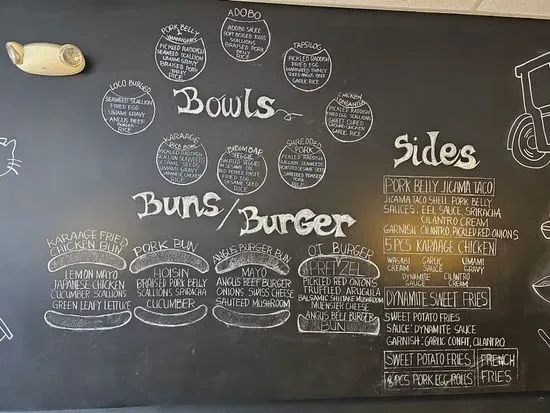 ADOBO
ADOBO SAUCE
SOFT BOILED EGGS
SCALLIONS
BRAISED PORK
BELLY
RICE
PORK BELLY
&
UMAMI GRAVY
PICKLED RADDISH
SCALLION
FRIED EGG
UMAMI GRAVY
BRAISED PORK
BELLY
RICE
TAPSILOG
PICKLED RADDISH
FRIED EGG
SLICED ANGUS BEEF
GARLIC RICE
LOCO BURGER
SEAWEED SCALLION
FRIED EGG
UMAMI GRAVY
ANGUS BEEF
RICE
Bowls
CHICKEN
PICKLED RADDISH
SCALLION
FRIED EGG
SWEET CURED
GROUND CHICKEN
GARLIC RICE
KARAAGE
RICE BOWL
PICKLED RADDISH
SCALLION SEAWEEDS
SESAME SEEDS
UMAMI GRAVY
JAPANESE CHICKEN
RICE
BIBIMBAP
VEGGIE
SAUTED VEGGIES
RED PEPPER PASTE
FRIED EGG
SESAME SEED
RICE
SHREDDED
PORK
PICKLED RADDISH
SCALLION
SEAWEEDS
SHREDDED BRAISED
PORK
RICE
Buns/Burger
KARAAGE FRIED
CHICKEN BUN
LEMON MAYO
JAPANESE CHICKEN
CUCUMBER SCALLIONS
GREEN LEAFY LETTUCE
PORK BUN
HOISIN
BRAISED PORK BELLY
SCALLIONS SRIRACHA
CUCUMBER
ANGUS BURGER BUN
MAYO
ANGUS BEEF BURGER
ONIONS SWISS CHEESE
SAUTEED MUSHROOM
OT BURGER
PRETZEL
PICKLED RED ONIONS
TRUFFLED ARUGULA
BALSAMIC SHIITAKE MUSHROOM
MUENSTER CHEESE
ANGUS BEEF BURGER
BUN
Sides
PORK BELLY JICAMA TACO
JICAMA TACO SHELL PORK BELLY
SAUCES: EEL SAUCE, SRIRACHA,
CILANTRO CREAM
GARNISH CILANTRO, PICKLED RED ONIONS
5 PCS KARAAGE CHICKEN
WASABI CREAM
GARLIC SAUCE
UMAMI GRAVY
DYNAMITE SAUCE
CILANTRO CREAM
DYNAMITE SWEET FRIES
SWEET POTATO FRIES
SAUCE: DYNAMITE SAUCE
GARNISH: GARLIC CONFIT, CILANTRO
SWEET POTATO FRIES
FRENCH
FRIES
PCS PORK EGG ROLLS